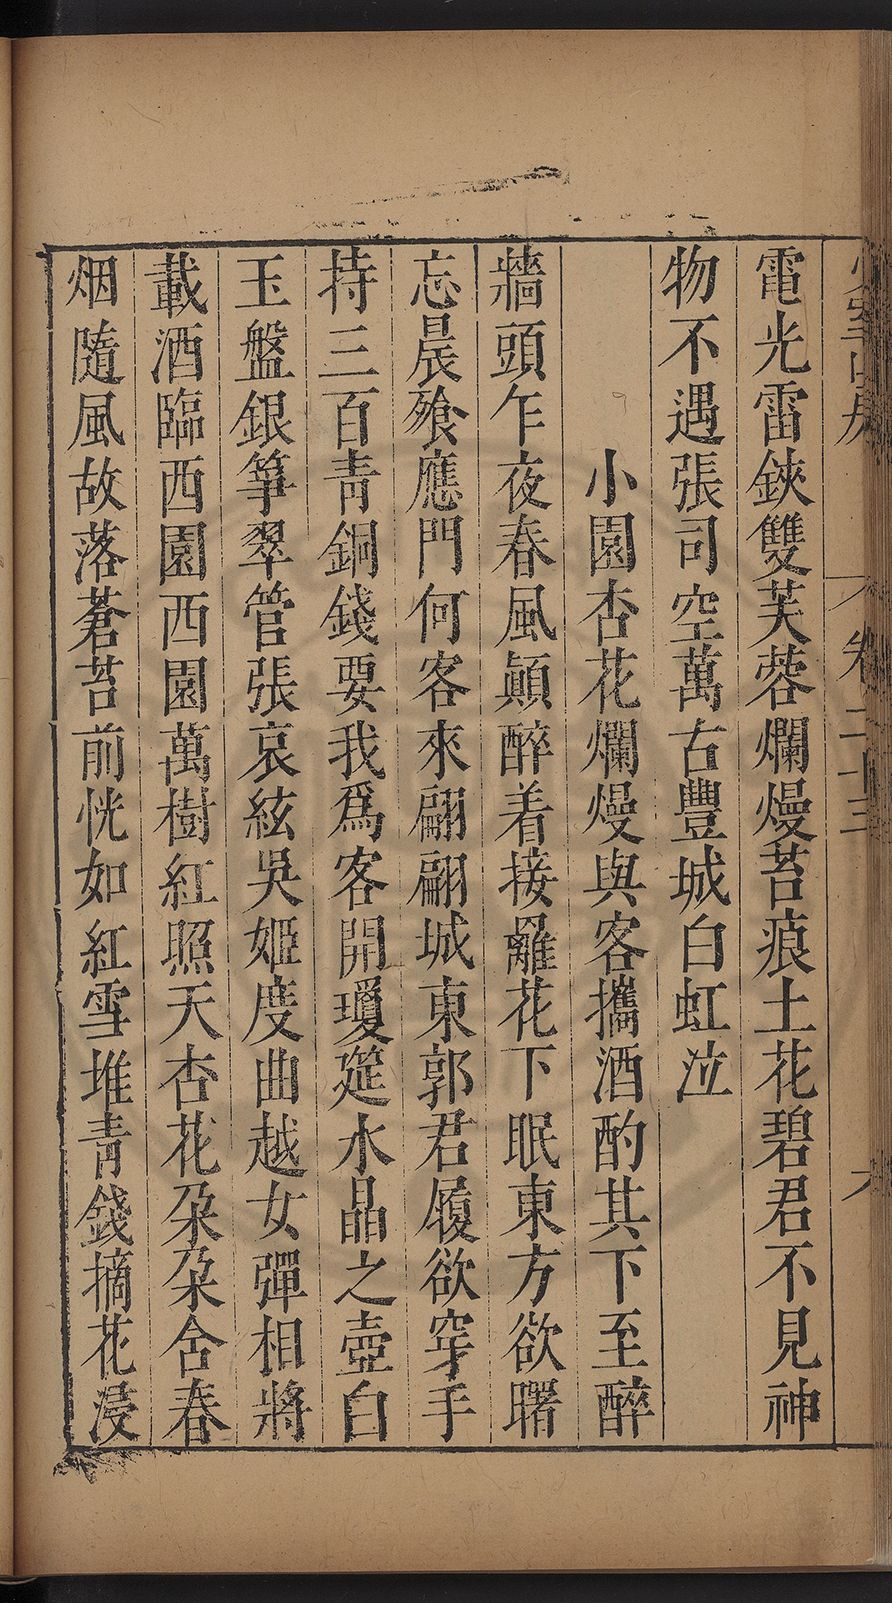 卷二十三
六
電光雷鋏雙芙蓉爛熳苔痕土花碧君不見神
物不遇張司空萬古豐城白虹泣
小園杏花爛熳與客攜酒酌其下至醉
牆頭乍夜春風顛醉着接䍦花下眠東方欲曙
忘晨飱應門何客來翩翩城東郭君履欲穿手
持三百青銅錢要我爲客開瓊筵水晶之壺白
玉盤銀箏翠管張哀絃吳姬度曲越女彈相將
載酒臨西園西園萬樹紅照天杏花朶朶含春
烟隨風故落蒼苔前恍如紅雪堆青錢摘花浸